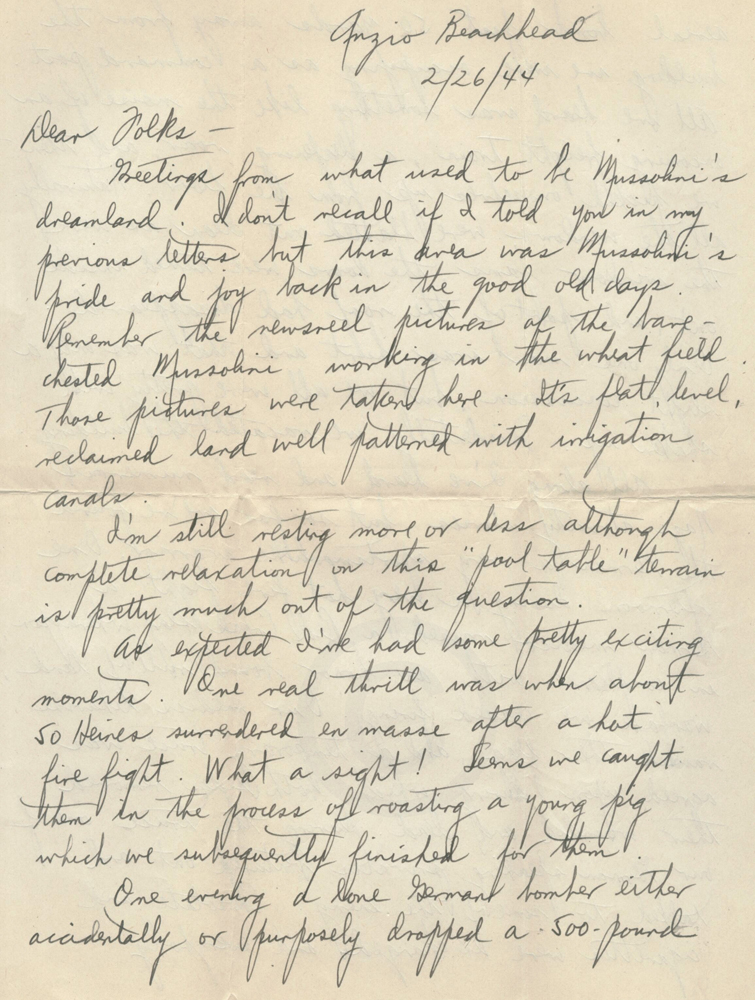 Anzio Beachhead
2/26/44
Dear Folks –
Greetings from what used to be Mussolini's
dreamland. I don't recall if I told you in my
previous letters but this area was Mussolini's
pride and joy back in the good old days.
Remember the newsreel pictures of the bare-
chested Mussolini working in the wheat field.
Those pictures were taken here. It's flat, level,
reclaimed land well patterned with irrigation
canals.
I'm still resting more or less although
complete relaxation on this "pool table" terrain
is pretty much out of the question.
As expected I've had some pretty exciting
moments. One real thrill was when about
50 Heines surrendered en masse after a hot
fire fight. What a sight! Seems we caught
them in the process of roasting a young pig
which we subsequently finished for them.
One evening a lone German bomber either
accidentally or purposely dropped a 500-pound